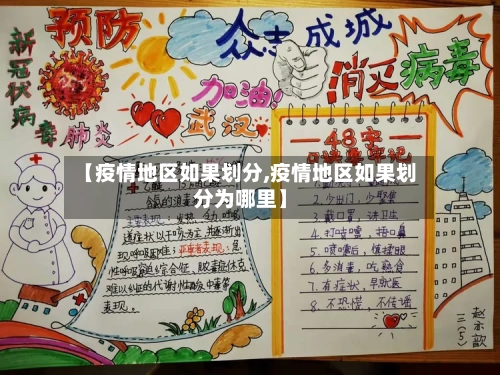 预防
新冠状病毒肺炎
众志成城
消灭病毒
加油!
武汉
48字
【疫情地区如果划分,疫情地区如果划
分为哪里】
2.少出门,少聚焦
3.戴口罩,讲卫生
4.打喷嚏,捂口鼻
5.喷嚏后,慎揉眼
6.多消毒,吃熟食
7.有症状,早就医
8.不恐慌,不传谣
主要表现:发热、乏力,呼吸
道症状以干咳为主,并逐渐出
现呼吸困难;严重者表现:急
性呼吸窘迫综合征、脓毒症休克、
难以纠正的代谢性酸中毒等
表现。
三(5)